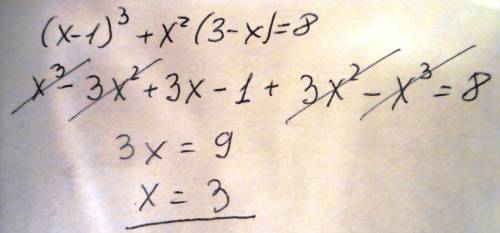 (x-1)³ + x²(3-x)=8
x³ - 3x² + 3x - 1 + 3x² - x³ = 8
3x = 9
x = 3